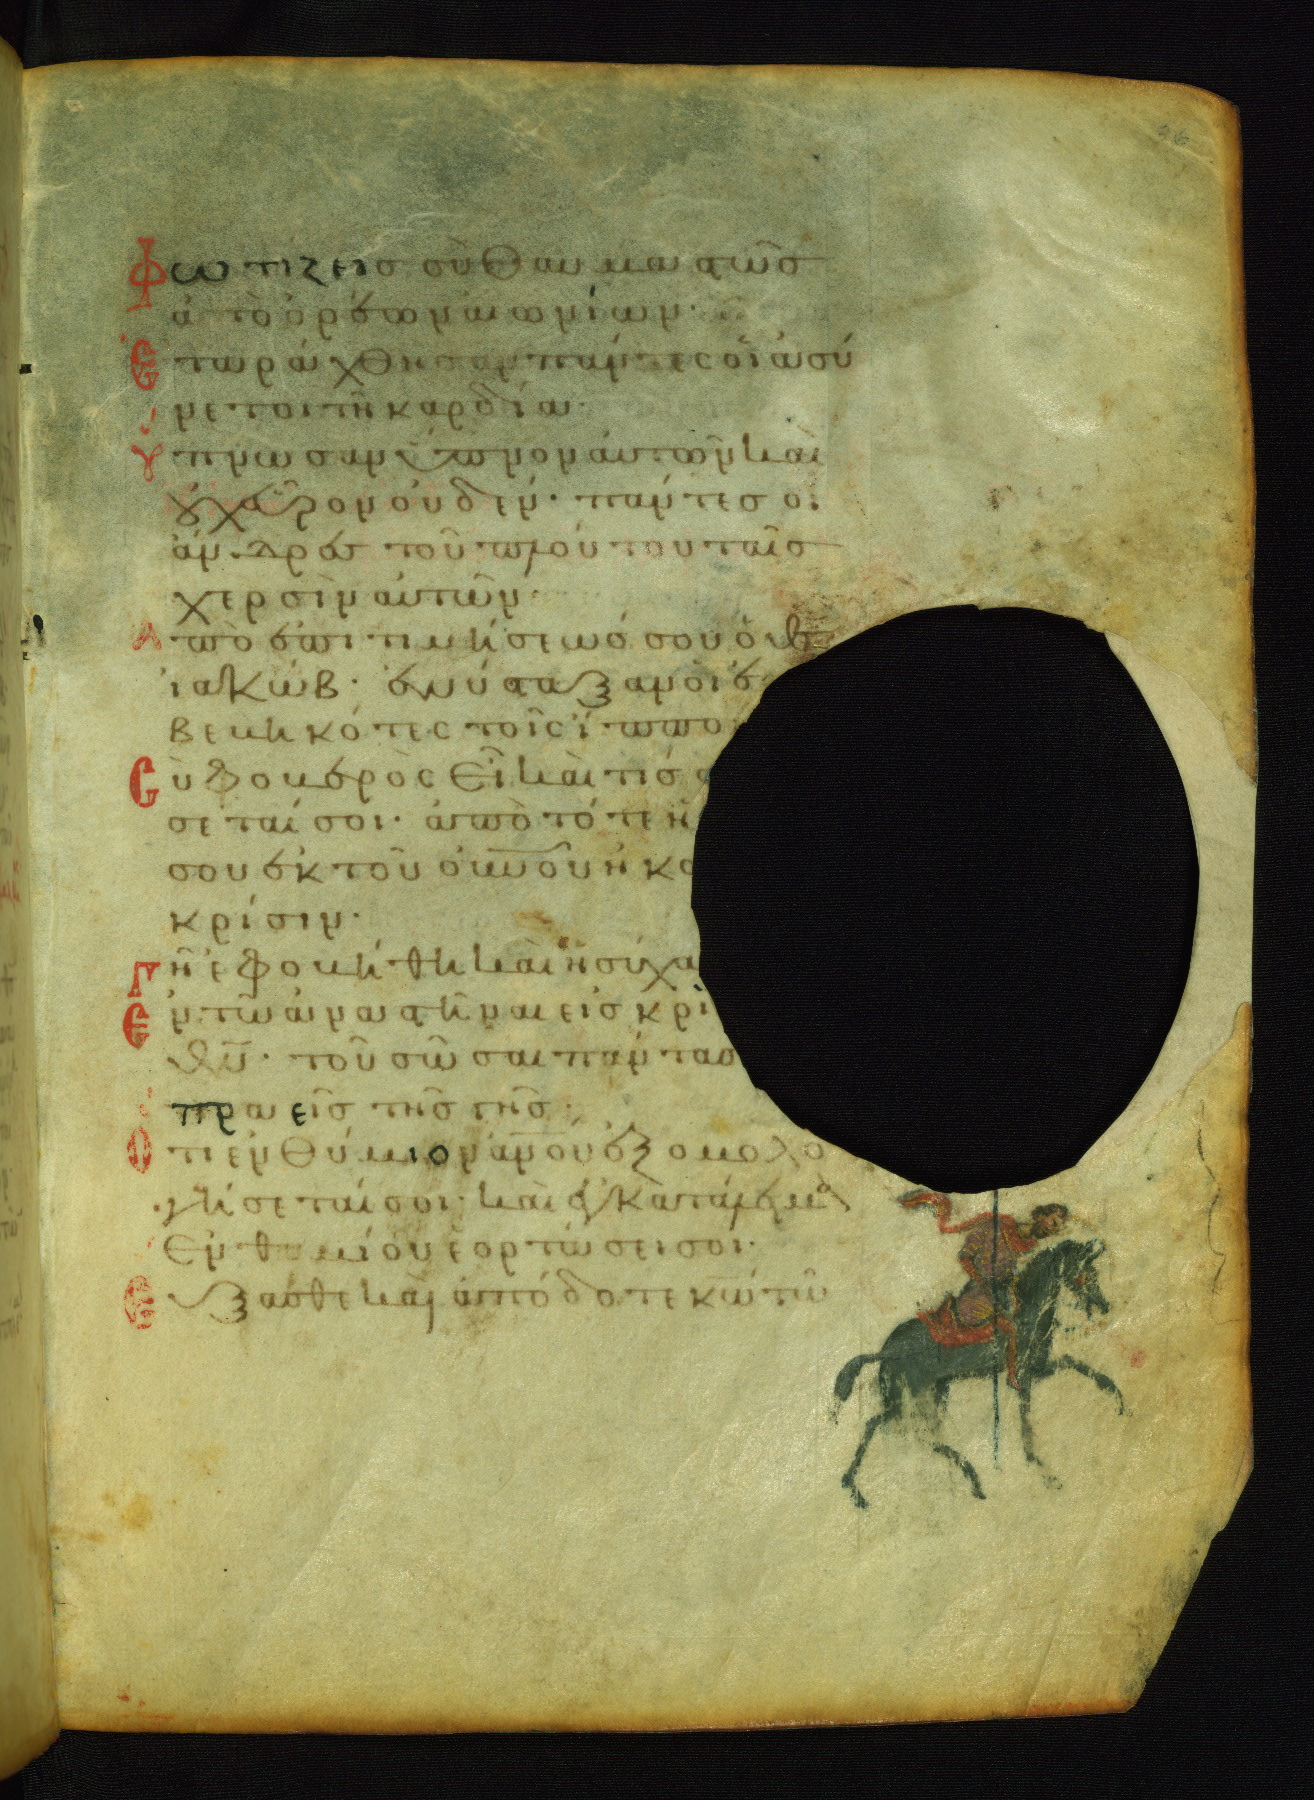 Φωτίζεις σὺ θαυμαστῶσ
ἀπὸ ὀρέων αἰωνίων·
Ἐταράχθησαν πάντες οἱ ἀσύ
νετοι τῆ καρδία·
Ὕπνωσαν ὕπνον αὐτῶν καὶ
οὐχ εὗρον οὐδέν· πάντεσ οἱ
ἄνδρες τοῦ πλούτου ταῖσ
χερσὶν αὐτῶν·
Ἀπὸ ἐπιτιμήσεώσ σου ὁ θς
ἰακώβ· ἐνύσταξαν οἱ ἐ
βεβηκότες τοῖς ἵππο
Σὺ φοβερὸς εἶ καὶ τίσ
σεταί σοι· ἀπὸ τότε ἡ
σου ἐκ τοῦ οὐνοῦ ἠκο
κρίσιν·
Γῆ ἐφοβήθη καὶ ἡσύχα
Ἐν τῶ ἀναστῆναι εἰσ κρί
θν· τοῦ σῶσαι πάντασ
πραεῖσ τῆσ γῆσ·
Ὅτι ἐνθύμιον ἀνοῦ ἐξομολο
γήσεταί σοι· καὶ ἐγκατάλειμ
ἐνθυμίου ἑορτάσει σοι·
Εὔξασθε καὶ ἀπόδοτε κω τῶ